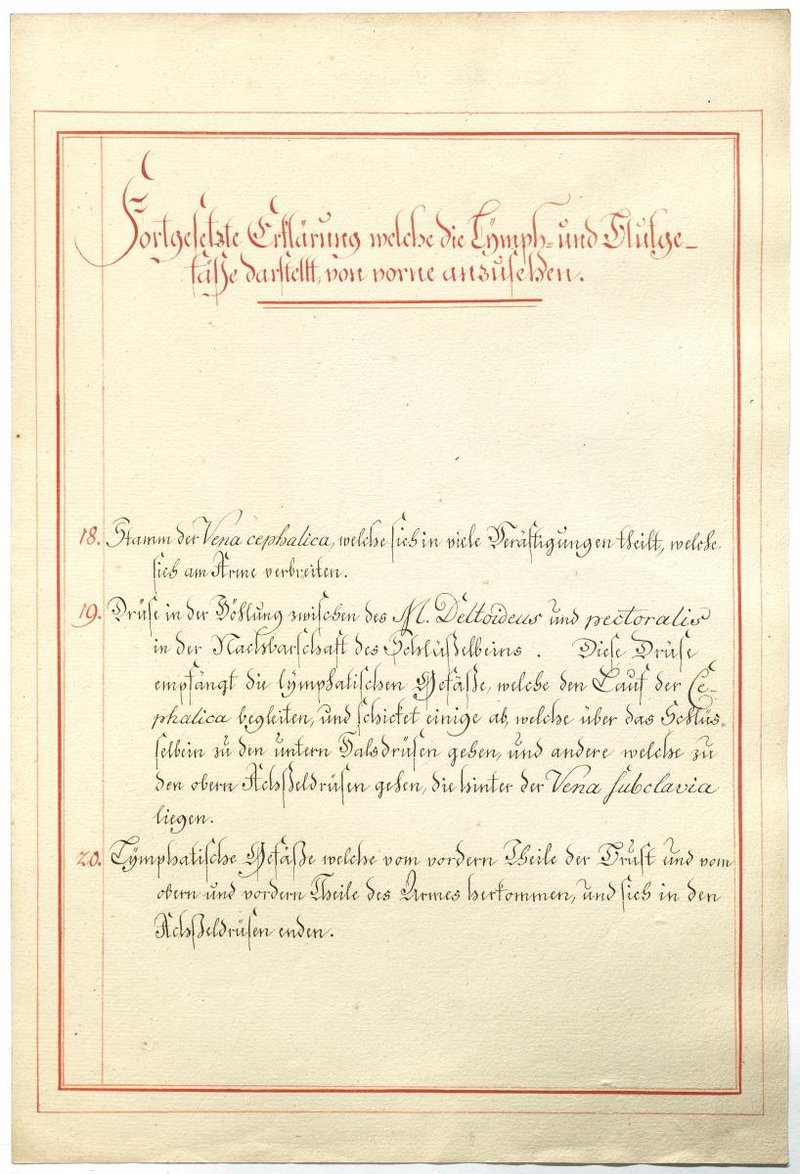 Fortgesetzte Erklärung welche die Lÿmph- und Blutge-
fäße darstellt, von vorne anzusehen.
18. Stamm der Vena cephalica, welche sich in viele Verästigungen theilt, welche
sich am Arme verbreiten.
19. Drüse in der Höhlung zwischen des M. Deltoideus und pectoralis
in der Nachbarschaft des Schlüßelbeins. Diese Drüse
empfängt die lÿmphatischen Gefäße, welche den Lauf der Ce-
phalica begleiten, und schicket einige ab, welche über das Schlüs-
selbein zu den untern Halsdrüsen gehen, und andere welche zu
den obern Achßeldrüsen gehen, die hinter der Vena subclavia
liegen.
20. Lÿmphatische Gefäße welche vom vordern Theile der Brust und vom
obern und vordern Theile des Armes herkommen, und sich in den
Achßeldrüsen enden.